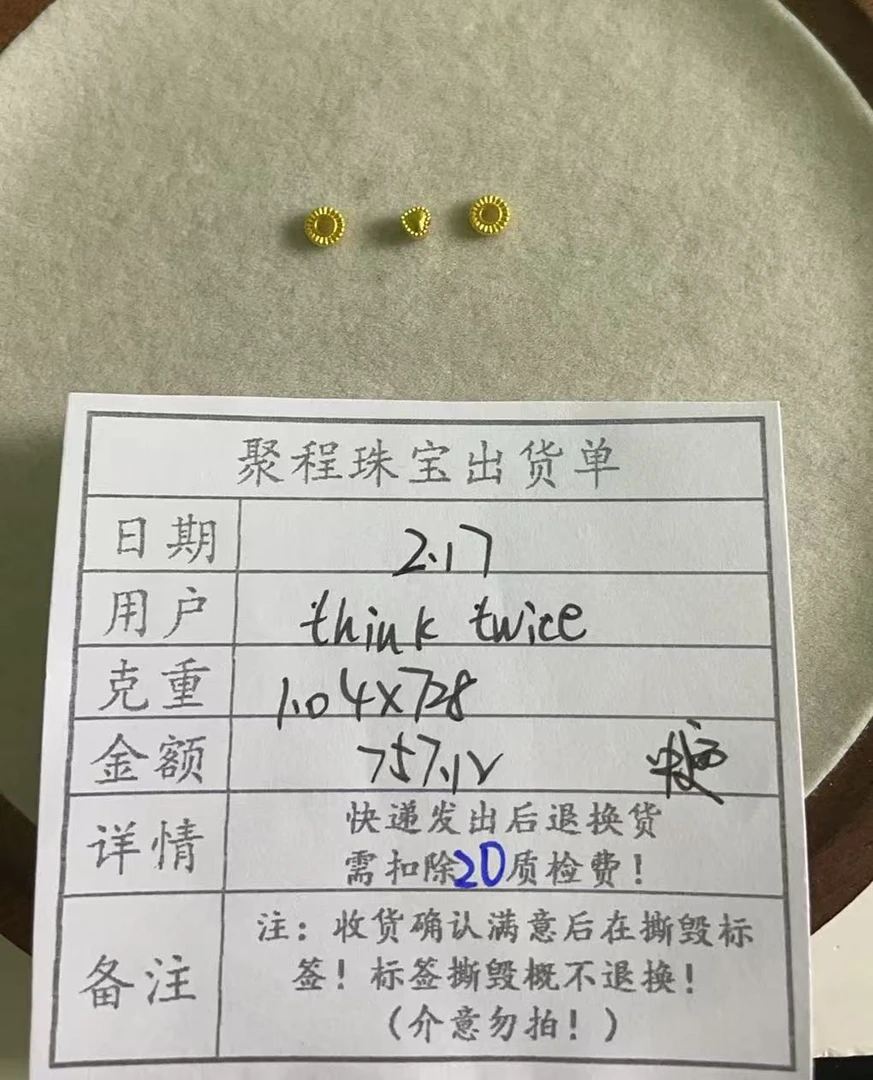 聚程珠宝出货单
日期 2.17
用户 think twice
克重 1.04X728
金额 757.12
详情 快递发出后退换货
需扣除20质检费！
备注 注：收货确认满意后在撕毁标
签！标签撕毁概不退换！
（介意勿拍！）